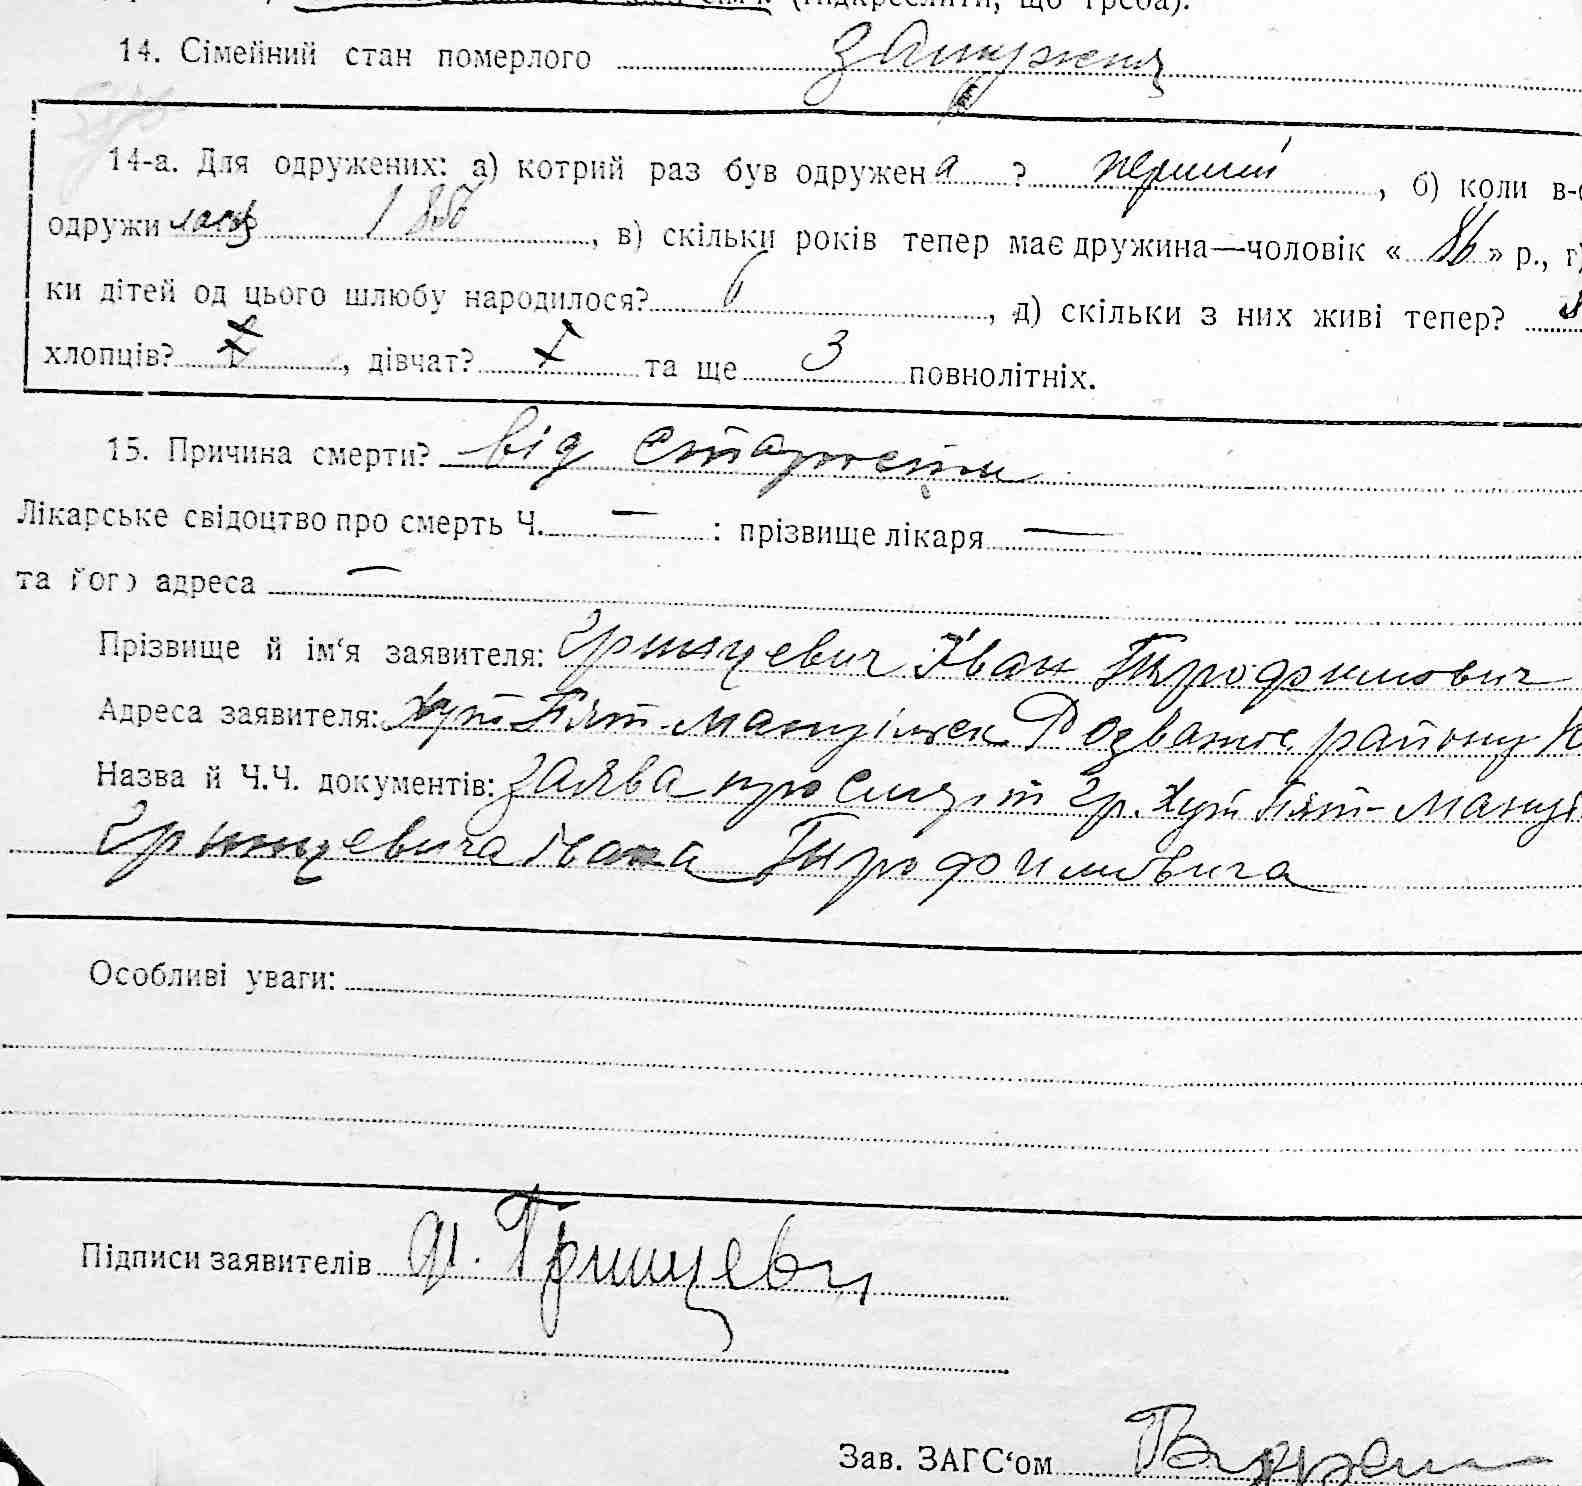 (підкреслити, що треба).
14. Сімейний стан померлого замужня
14-а. Для одружених: а) котрий раз був одружен а ? перший, б) коли в-
одружи лась, в) скільки років тепер має дружина—чоловік « 86 » р., г)
ки дітей од цього шлюбу народилося? 6, д) скільки з них живі тепер?
хлопців?, дівчат? та ще 3 повнолітніх.
15. Причина смерти? від старости
Лікарське свідоцтво про смерть Ч. — : прізвище лікаря —
та його адреса —
Прізвище й ім‘я заявителя: Гринцевич Іван Трофимович
Адреса заявителя: Хут Пят-Мануільск Розваж. району К
Назва й Ч.Ч. документів: Заява про смерт гр. Хут Пят-Мануі
Гринцевича Івана Трофимовича
Особливі уваги:
Підписи заявителів Гринцевич
Зав. ЗАГС‘ом